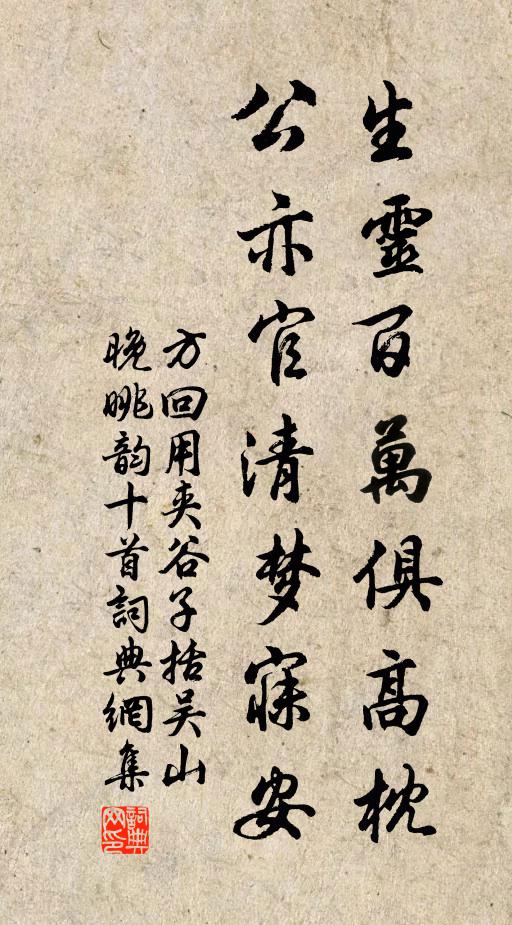 生靈百萬俱高枕
公亦官清梦寐安
方回用夹谷子括吴山
晚眺韵十首詞典網集
詞典网印